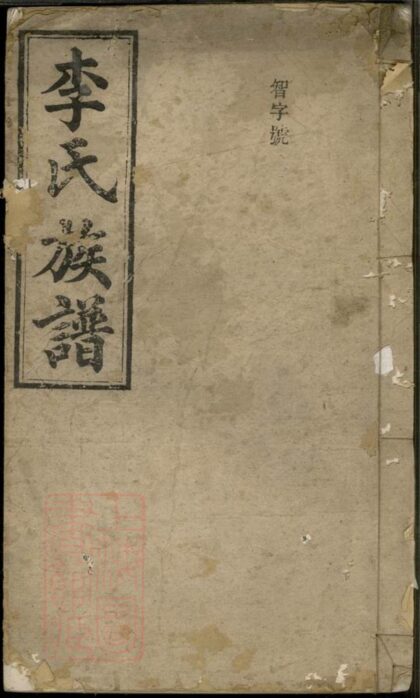 李氏族譜
智字號